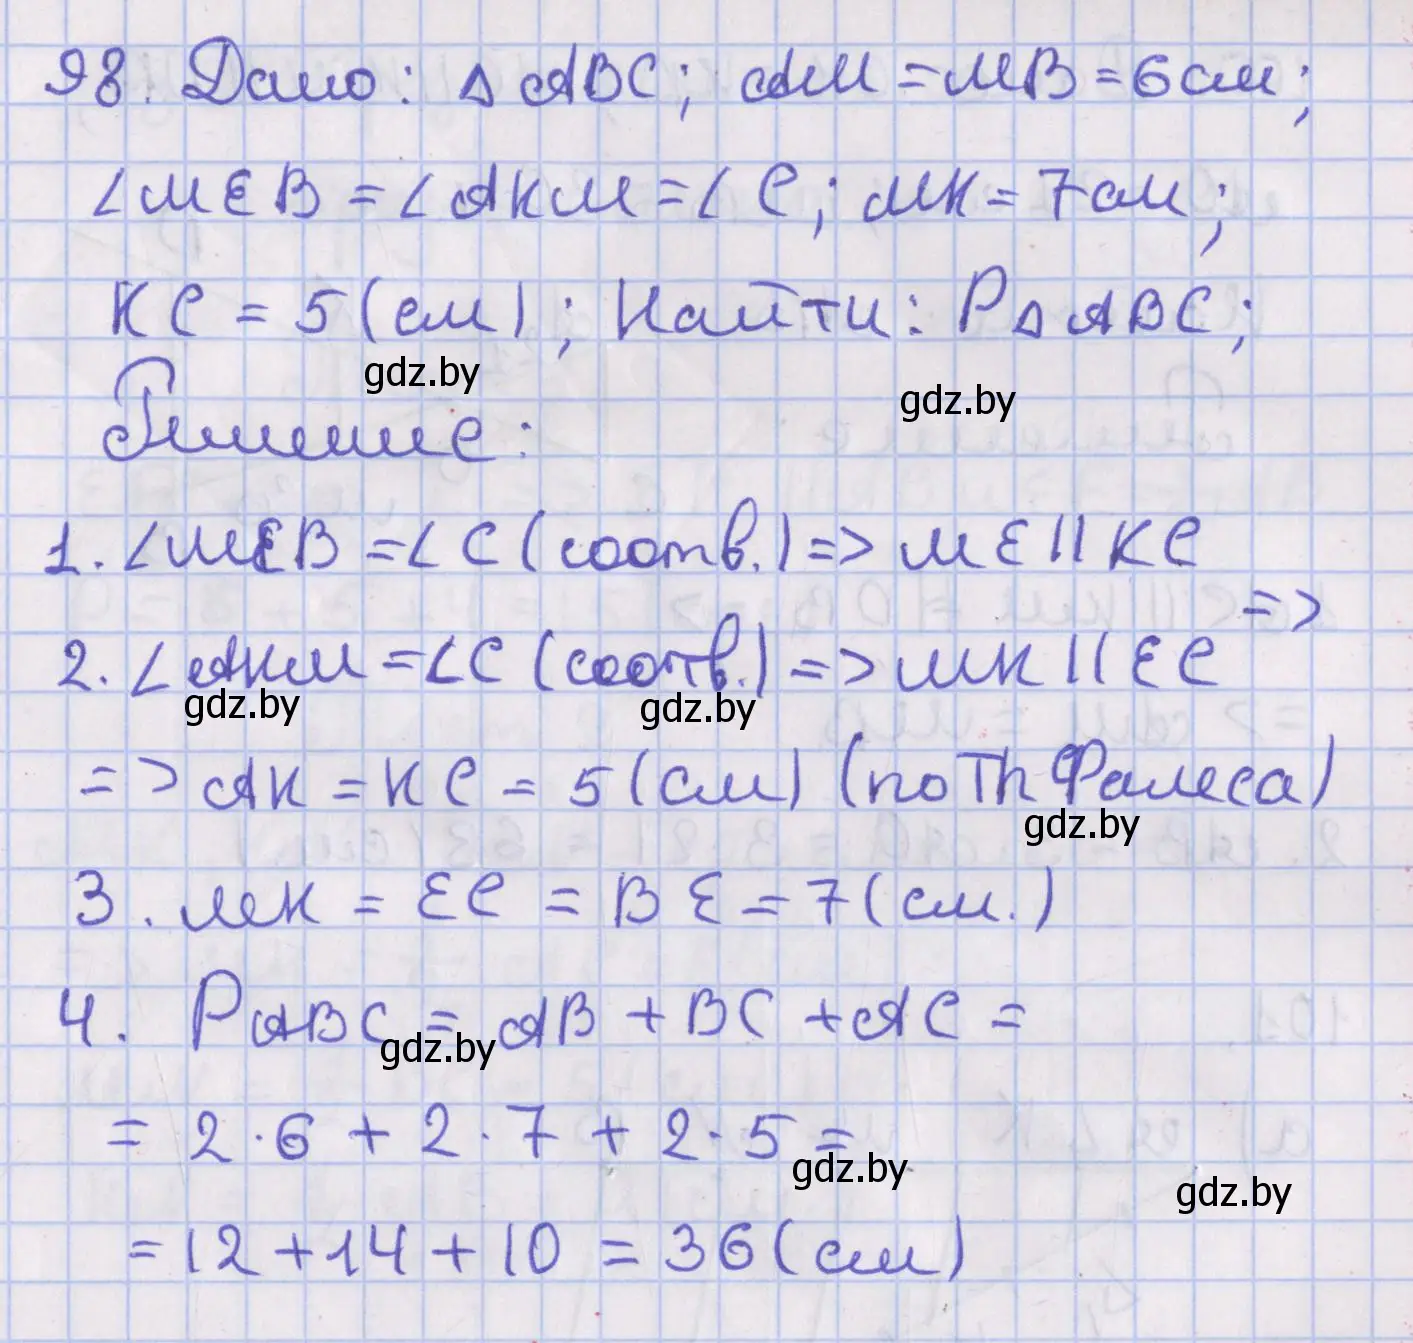 98. Дано: △ ABC; AM = MB = 6 см;
∠MEB = ∠AKM = ∠C; MK = 7 см;
KC = 5 (см); Найти: P△ABC;
gdz.by
gdz.by
Решение:
1. ∠MEB = ∠C (соотв.) => ME || KC
=>
2. ∠AKM = ∠C (соотв.) => MK || EC
gdz.by
gdz.by
=> AK = KC = 5 (см) (по Th Фалеса)
gdz.by
3. MK = EC = BE = 7 (см.)
4. PABC = AB + BC + AC =
gdz.by
= 2·6 + 2·7 + 2·5 =
gdz.by
gdz.by
= 12 + 14 + 10 = 36 (см)